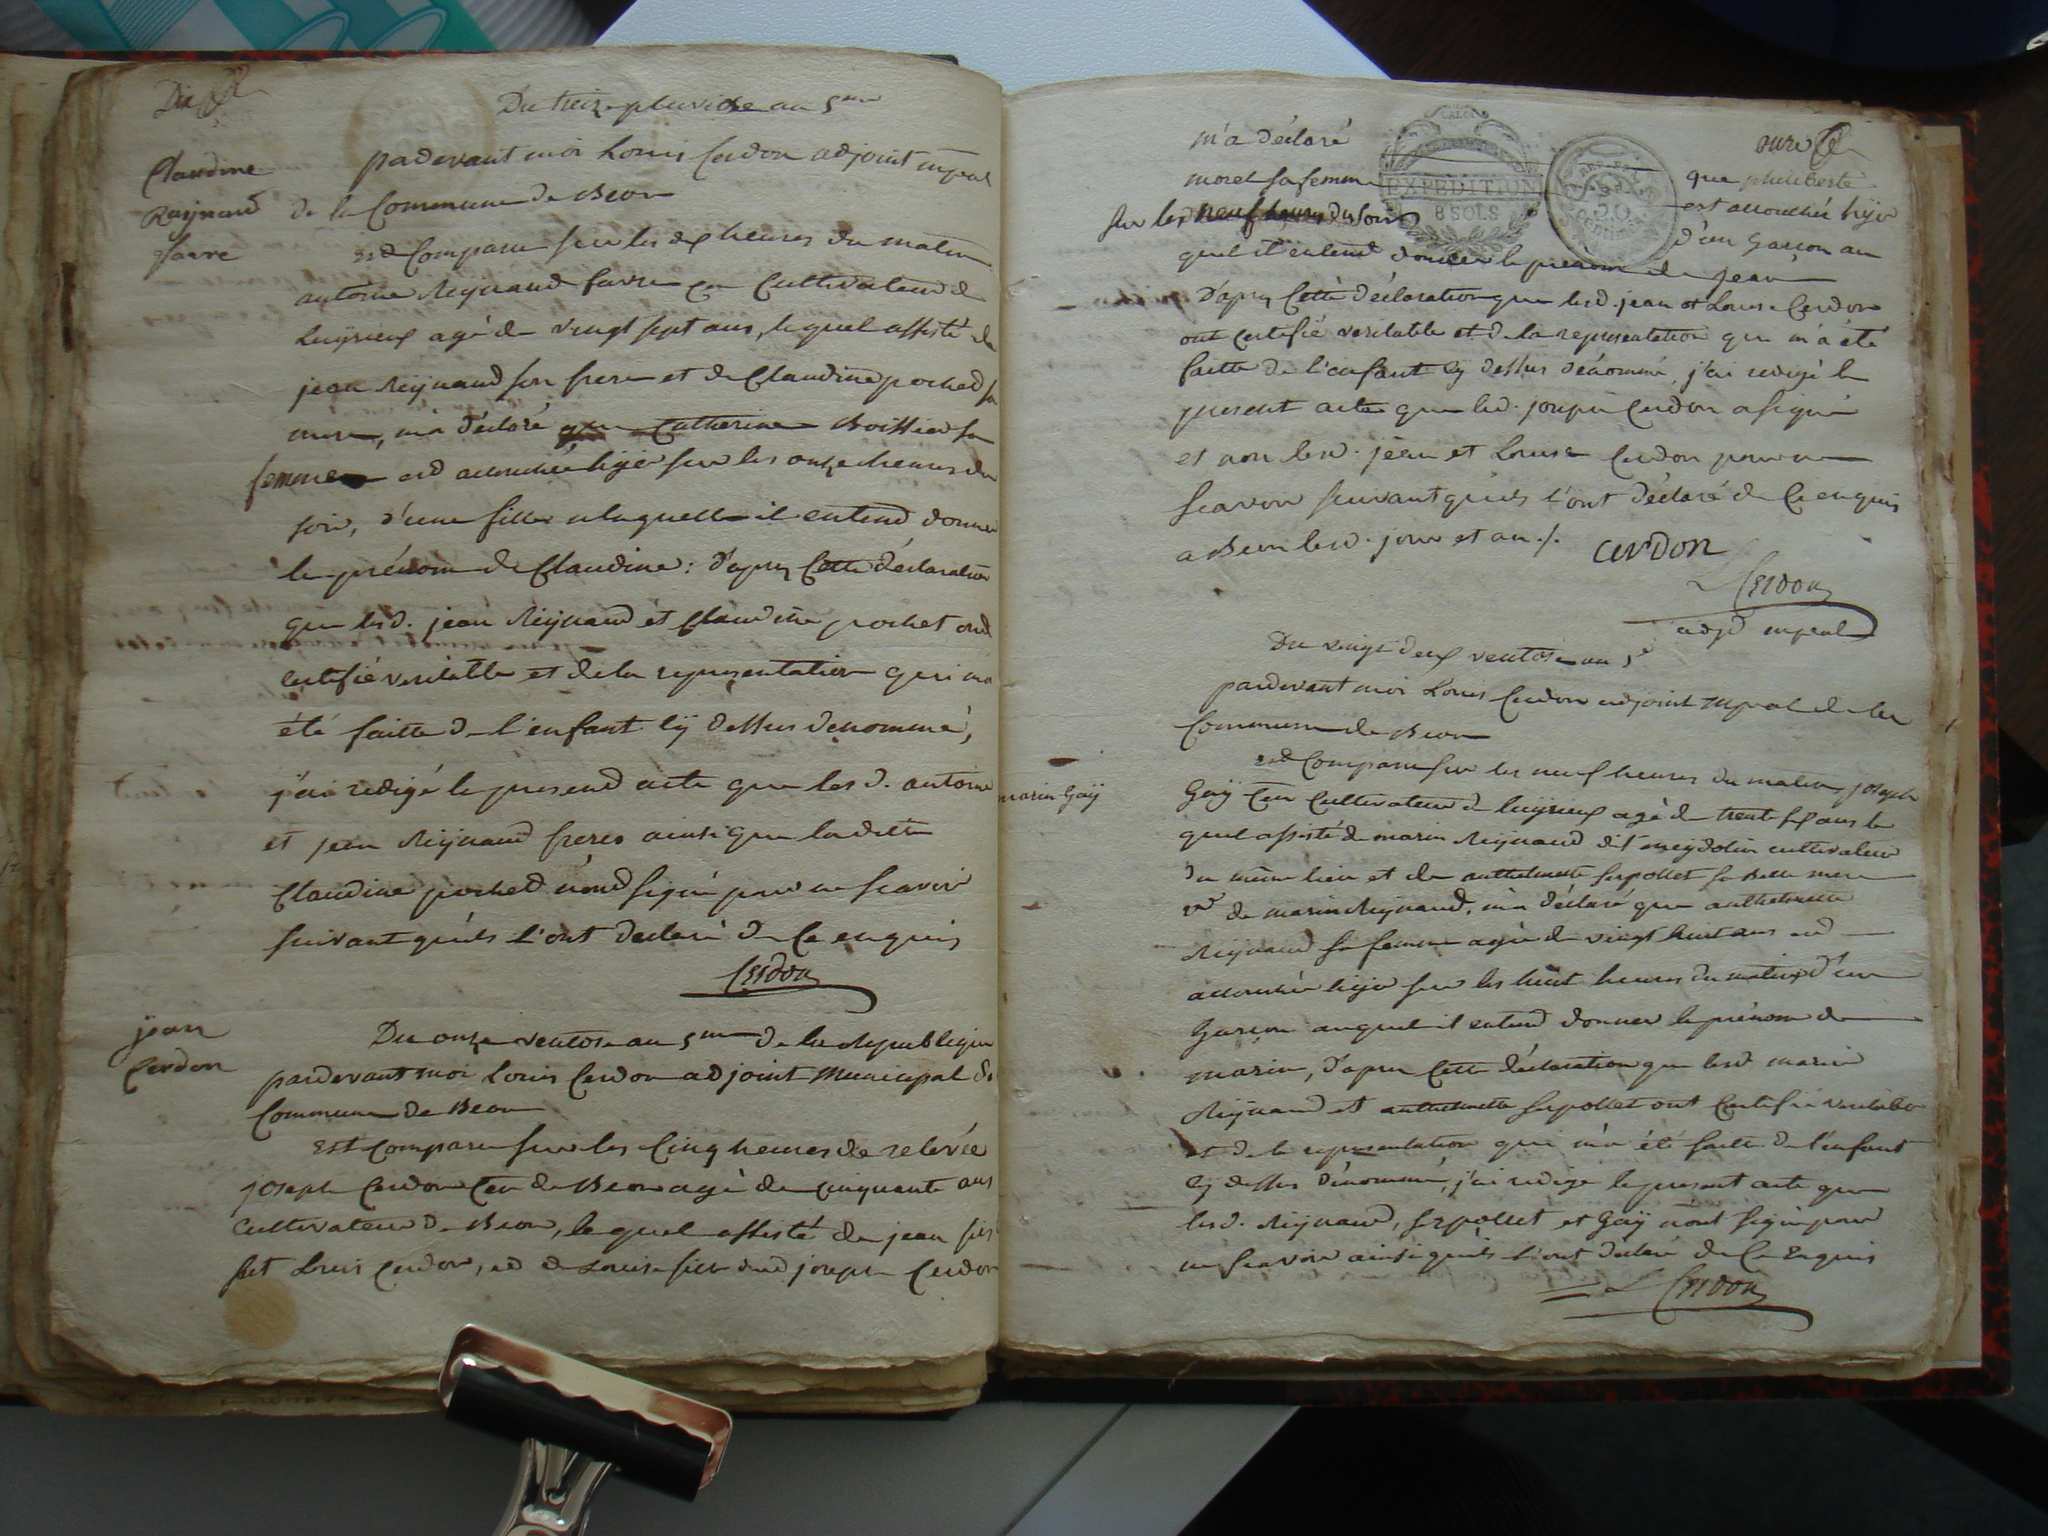 Dix
Du treize pluviose an 5me
Claudine
Reynaud
favre
pardevant moi Louis Cerdon adjoint mpal
de la Commune de Beon
est Comparu sur les dix heures du matin
antoine Reÿnaud favre Cen Cultivateur de
Luÿrieux agé de vingt sept ans, lequel assisté de
jean Reÿnaud son frere et de Claudine pochet sa
mere, m'a déclaré que Catherine Boissieu sa
femme est accouchée hÿer sur les onze heures du
soir, d'une fille a laquelle il entend donner
le prénom de Claudine: d'après Cette déclaration
que lesd. jean Reÿnaud et Claudine pochet ont
certifié veritable et de la representation qui m'a
été faitte de l'enfant cÿ dessus denommé,
j'ai redigé le present acte que lesd. antoine
et jean Reÿnaud freres ainsi que la ditte
Claudine pochet n'ont signé pour ne scavoir
suivant qu'ils l'ont declaré de Ce enquis
Cerdon
jean
Cerdon
Du onze ventose an 5me de la Republique
pardevant moi Louis Cerdon adjoint Municipal de
Commune de Beon
Est Comparu sur les Cinq heures de relevée
joseph Cerdon Cen de Beon agé de cinquante ans
Cultivateur de Beon, lequel assisté de jean fils
Louis Cerdon, et de Louise fille dud joseph Cerdon
onze
m'a déclaré que philiberte
morel sa femme est accouchée hÿer
EXPÉDITION
8 SOLS
50
Centimes
sur les neuf heures du soir d'un Garçon au
quel il entend donner le prenom de jean
D'après Cette déclaration que lesd. jean et Louise Cerdon
ont certifié veritable et de la representation qui m'a été
faitte de l'enfant cÿ dessus dénommé, j'ai redigé le
present acte que led. joseph Cerdon a signé
et non lesd. jean et Louise Cerdon pour ne
scavoir suivant qu'ils l'ont déclaré de Ce enquis
a Beon lesd. jour et an ./.
cerdon
L Cerdon
adjt mpal
Du vingt deux ventose an 5e
pardevant moi Louis Cerdon adjoint Mpal de la
Commune de Beon
marin Gaÿ
est Comparu sur les neuf heures du matin, joseph
Gaÿ Cen Cultivateur de Luÿrieux agé de trente six ans le
quel assisté de marin Reÿnaud dit cultivateur
du même lieu et de anthelmette Serpollet sa Belle mere
ve de marin Reÿnaud, m'a déclaré que anthelmette
Reÿnaud sa femme agée de vingt huit ans est
accouchée hÿer sur les huit heures du matin, d'un
Garçon auquel il entend donner le prénom de
marin, d'après Cette déclaration que lesd marin
Reÿnaud et anthelmette Serpollet ont Certifié veritable
et de la representation qui m'a été faitte de l'enfant
cÿ dessus dénommé, j'ai redigé le present acte que
lesd. Reÿnaud, Serpollet et Gaÿ n'ont signé pour
ne scavoir ainsi qu'ils l'ont déclaré de Ce Enquis
L Cerdon